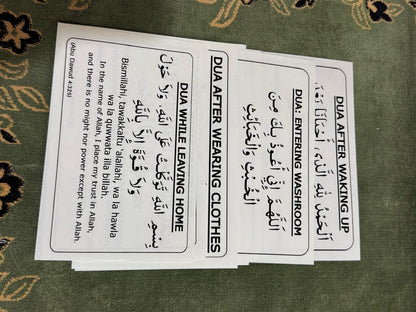 DUA AFTER WAKING UP
اَلْحَمْدُ لِلّٰهِ الَّذِىْ اَحْيَانَا بَعْدَ
DUA: ENTERING WASHROOM
اَللّٰهُمَّ اِنِّيْ اَعُوْذُ بِكَ مِنَ
الْخُبُثِ وَالْخَبَائِثِ
DUA AFTER WEARING CLOTHES
DUA WHILE LEAVING HOME
بِسْمِ اللّٰهِ تَوَكَّلْتُ عَلَى اللّٰهِ، وَلَا حَوْلَ
وَلَا قُوَّةَ اِلَّا بِاللّٰهِ
Bismillahi, tawakkaltu 'alallahi, wa la hawla
wa la quwwata illa billah.
In the name of Allah, I place my trust in Allah,
and there is no might nor power except with Allah.
(Abu Dawud 4:325)